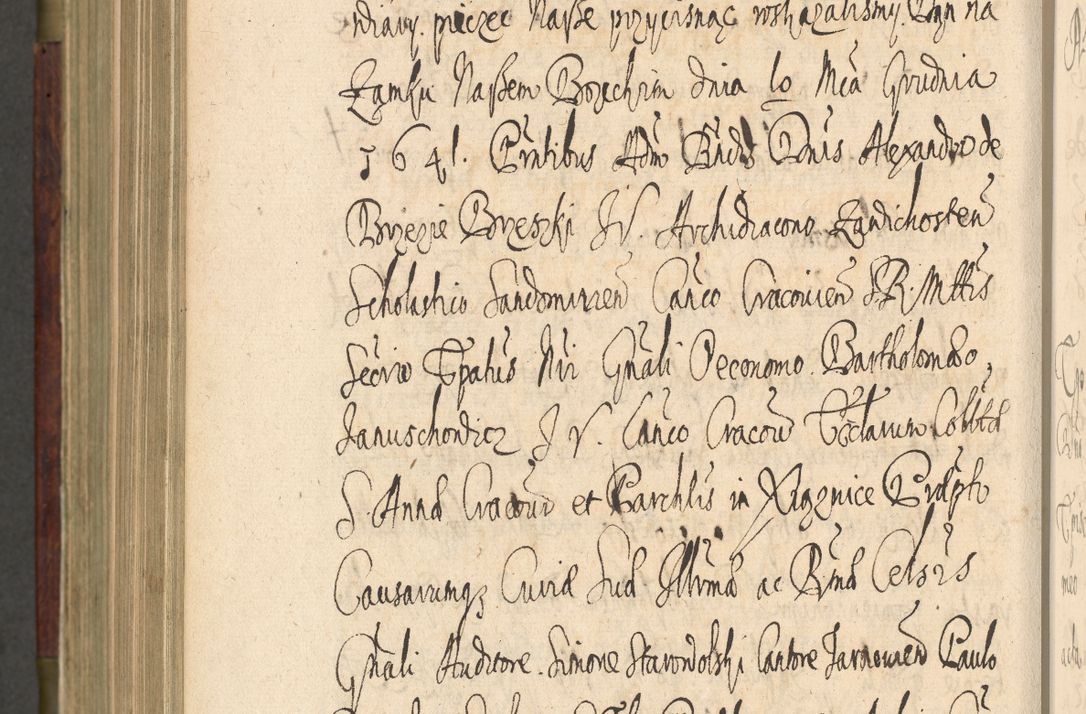 pieczęc Nasze przycisnąc roskazalismy. Dan na
Zamku Naszem Bozechim dnia 10 Mca Grudnia
1641. Pntibus Adm Rndis Dnis Alexandro de
Brzezie Brzeski JV. Archidiacono Zawichosten
Scholastico Sandomirien Canco Cracovien S.R. Mttis
Secrio Epatus Nri Gnali Oeconomo. Bartholomæo,
Januschowicz J V. Canco Cracov Ecclarum Collæ
S. Annæ Cracov et Parchlis in Xiąznice Præpto
Causarumq3 Curiæ Suæ Illrmæ ac Rmæ Celsis
Gnali Auditore. Simone Starowolski Cantore Tarnovien Paulo